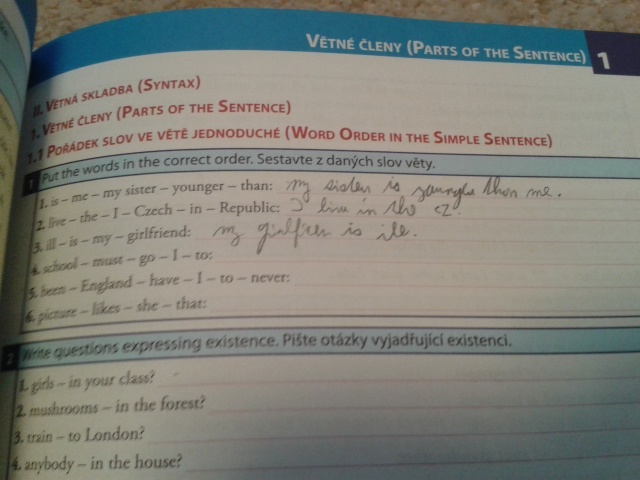 VĚTNÉ ČLENY (PARTS OF THE SENTENCE) 1
II. VĚTNÁ SKLADBA (SYNTAX)
1. VĚTNÉ ČLENY (PARTS OF THE SENTENCE)
1.1 POŘÁDEK SLOV VE VĚTĚ JEDNODUCHÉ (WORD ORDER IN THE SIMPLE SENTENCE)
1 Put the words in the correct order. Sestavte z daných slov věty.
1. is – me – my sister – younger – than: my sister is younger than me.
2. live – the – I – Czech – in – Republic: I live in the CZ.
3. ill – is – my – girlfriend: my is ill.
4. school – must – go – I – to:
5. been – England – have – I – to – never:
6. picture – likes – she – that:
2 Write questions expressing existence. Pište otázky vyjadřující existenci.
1. girls – in your class?
2. mushrooms – in the forest?
3. train – to London?
4. anybody – in the house?